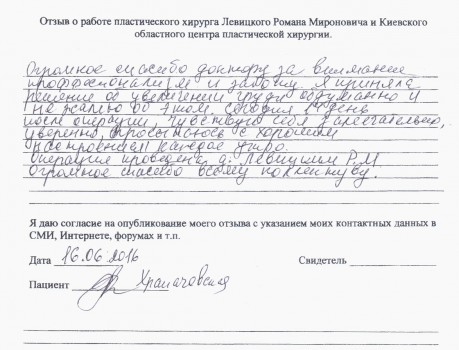 Отзыв о работе пластического хирурга Левицкого Романа Мироновича и Киевского
областного центра пластической хирургии.
Огромное спасибо доктору за внимание
профессионализм и заботу. Я приняла
решение об увеличении груди обдуманно и
не жалею об этом. Сегодня день
после операции, чувствую себя замечательно,
уверенно, просыпаюсь с хорошим
настроением каждое утро.
Операция проведена д. Левицким Р.М.
Огромное спасибо всему коллективу.
Я даю согласие на опубликование моего отзыва с указанием моих контактных данных в
СМИ, Интернете, форумах и т.п.
Дата 16.06.2016 Свидетель
Пациент